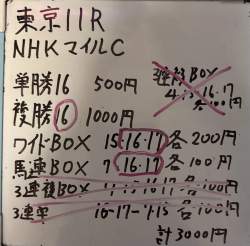 東京11R
NHKマイルC
単勝16 500円
複勝16 1000円
BOX
4.15.16.17
各100円
ワイドBOX 15.16.17 各200円
馬連BOX 7.16.17 各100円
3連複BOX 15 16 17 各100円
3連単 16-17-7.15 各100円
計3000円